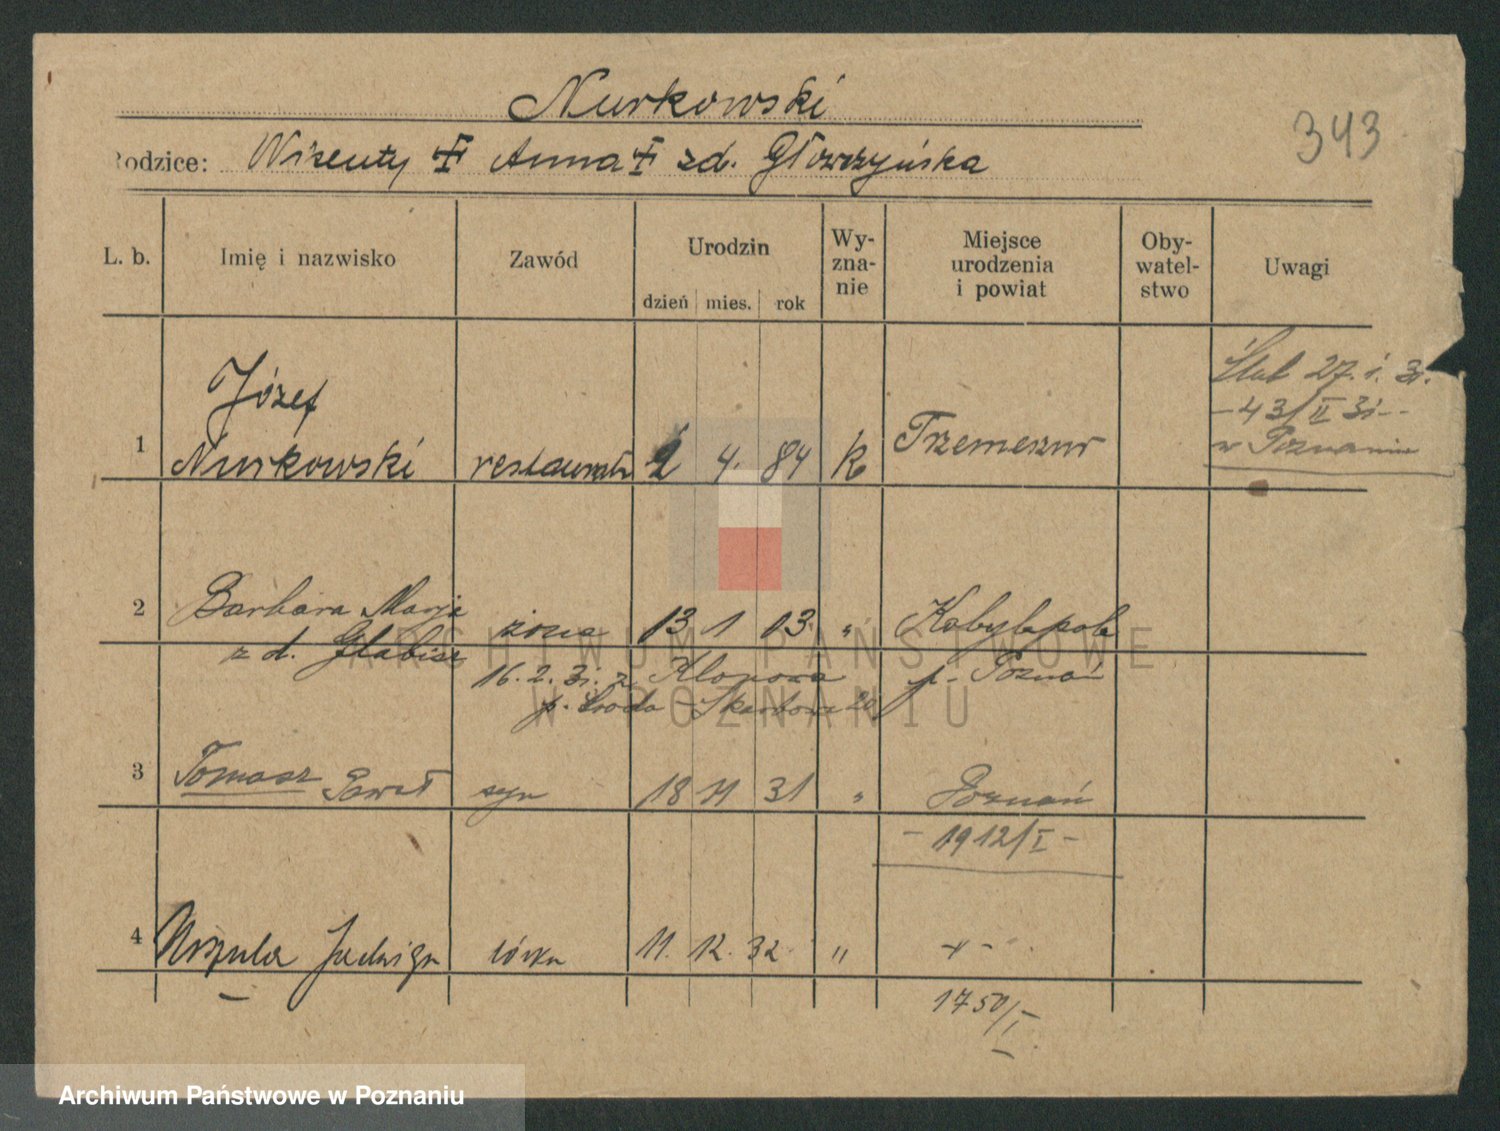 Nurkowski
343
Rodzice: Wizenty Anna zd. Głowczyńska
L. b. Imię i nazwisko Zawód Urodzin dzień mies. rok Wy-zna-nie Miejsce urodzenia i powiat Oby-watel-stwo Uwagi
Ślub 27. 1. 31.
- 43/II 31 -
w Poznaniu
Józef
1 Nurkowski restaurator 2 4. 84 k Trzemeszno
2 Barbara Marja żona 13 1 03. „ Kobylepole
z d. Glabisz p. Poznań
16. 2. 31. z Klonowa
p. Środa - Skarbowa 20
3 Tomasz Paweł syn 18 11 31 „ Poznań
- 1912/I -
4 Urszula Jadwiga córka 11. 12. 32. „ - „ -
1750/I
ARCHIWUM PAŃSTWOWE
W POZNANIU
Archiwum Państwowe w Poznaniu